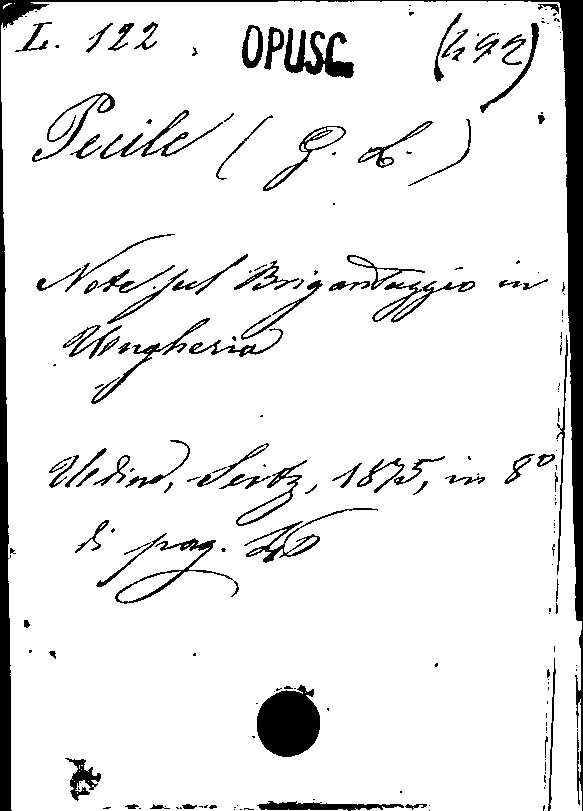 L. 122. OPUSC. (492)
Pecile (G. L.)
Note sul Brigantaggio in
Ungheria
Udine, Seitz, 1875, in 8°
di pag.